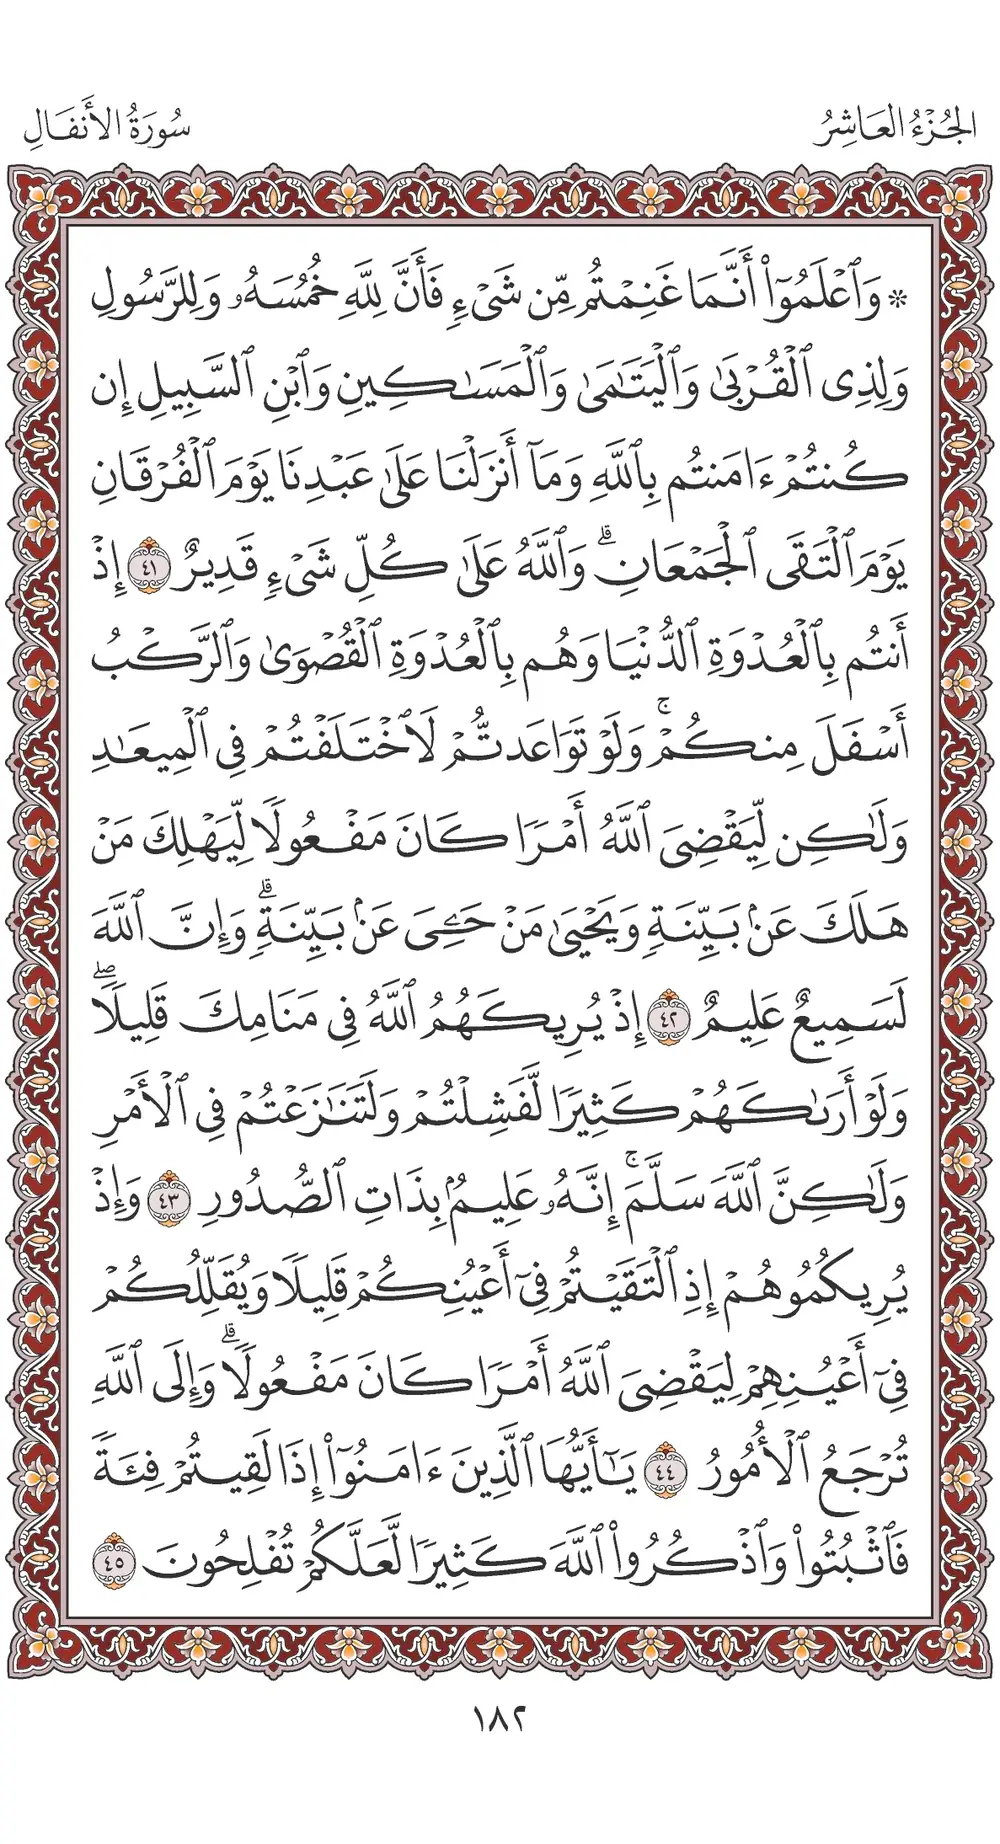 الجُزْءُ العَاشِرُ
سُورَةُ الأَنفَالِ
* وَٱعۡلَمُوٓاْ أَنَّمَا غَنِمۡتُم مِّن شَيۡءٖ فَأَنَّ لِلَّهِ خُمُسَهُۥ وَلِلرَّسُولِ
وَلِذِي ٱلۡقُرۡبَىٰ وَٱلۡيَتَٰمَىٰ وَٱلۡمَسَٰكِينِ وَٱبۡنِ ٱلسَّبِيلِ إِن
كُنتُمۡ ءَامَنتُم بِٱللَّهِ وَمَآ أَنزَلۡنَا عَلَىٰ عَبۡدِنَا يَوۡمَ ٱلۡفُرۡقَانِ
يَوۡمَ ٱلۡتَقَى ٱلۡجَمۡعَانِۗ وَٱللَّهُ عَلَىٰ كُلِّ شَيۡءٖ قَدِيرٌ ٤١ إِذۡ
أَنتُم بِٱلۡعُدۡوَةِ ٱلدُّنۡيَا وَهُم بِٱلۡعُدۡوَةِ ٱلۡقُصۡوَىٰ وَٱلرَّكۡبُ
أَسۡفَلَ مِنكُمۡۚ وَلَوۡ تَوَاعَدتُّمۡ لَٱخۡتَلَفۡتُمۡ فِي ٱلۡمِيعَٰدِ
وَلَٰكِن لِّيَقۡضِيَ ٱللَّهُ أَمۡرٗا كَانَ مَفۡعُولٗا لِّيَهۡلِكَ مَنۡ
هَلَكَ عَنۢ بَيِّنَةٖ وَيَحۡيَىٰ مَنۡ حَيَّ عَنۢ بَيِّنَةٖۗ وَإِنَّ ٱللَّهَ
لَسَمِيعٌ عَلِيمٌ ٤٢ إِذۡ يُرِيكَهُمُ ٱللَّهُ فِي مَنَامِكَ قَلِيلٗاۖ
وَلَوۡ أَرَىٰكَهُمۡ كَثِيرٗا لَّفَشِلۡتُمۡ وَلَتَنَٰزَعۡتُمۡ فِي ٱلۡأَمۡرِ
وَلَٰكِنَّ ٱللَّهَ سَلَّمَۚ إِنَّهُۥ عَلِيمُۢ بِذَاتِ ٱلصُّدُورِ ٤٣ وَإِذۡ
يُرِيكُمُوهُمۡ إِذِ ٱلۡتَقَيۡتُمۡ فِيٓ أَعۡيُنِكُمۡ قَلِيلٗا وَيُقَلِّلُكُمۡ
فِيٓ أَعۡيُنِهِمۡ لِيَقۡضِيَ ٱللَّهُ أَمۡرٗا كَانَ مَفۡعُولٗاۗ وَإِلَى ٱللَّهِ
تُرۡجَعُ ٱلۡأُمُورُ ٤٤ يَٰٓأَيُّهَا ٱلَّذِينَ ءَامَنُوٓاْ إِذَا لَقِيتُمۡ فِئَةٗ
فَٱثۡبُتُواْ وَٱذۡكُرُواْ ٱللَّهَ كَثِيرٗا لَّعَلَّكُمۡ تُفۡلِحُونَ ٤٥
١٨٢